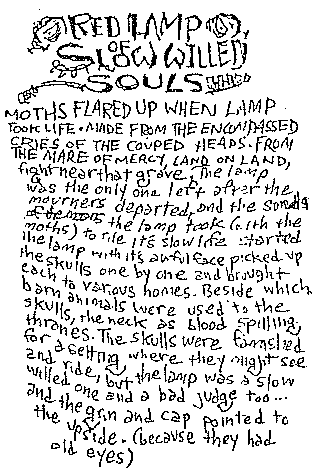 RED LAMP
OF
SLOW WILLED
SOULS
MOTHS FLARED UP WHEN LAMP
TOOK LIFE. MADE FROM THE ENCOMPASSED
CRIES OF THE COUPED HEADS. FROM
THE MARE OF MERCY, LAND ON LAND,
fight near that grove, The lamp
was the only one left after the
mourners departed, and the sounds
the lamp took (with the
moths) to rile its slow life started
the lamp with its awful face picked up
the skulls one by one and brought
each to various homes. Beside which
barn animals were used to the
skulls, the neck as blood spilling,
thrones. The skulls were famished
for a setting where they might see
and ride, but the lamp was a slow
willed one and a bad judge too...
and the grin and cap pointed to
the upside. (because they had
old eyes)